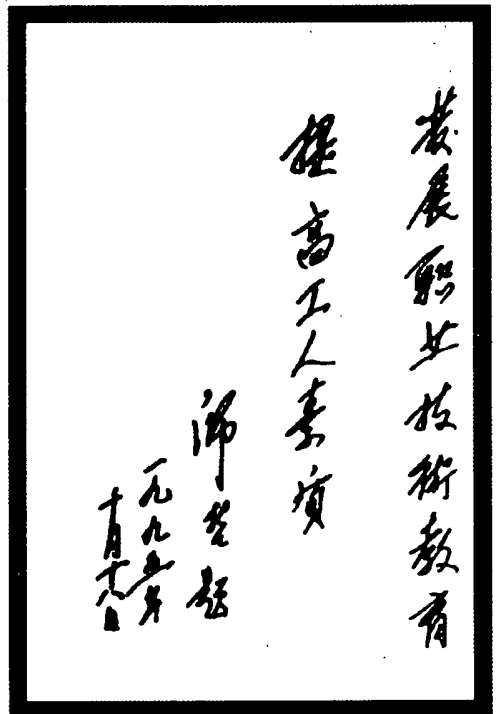 发展职业技術教育
提高工人素质
师哲题
一九九五年
十月十八日